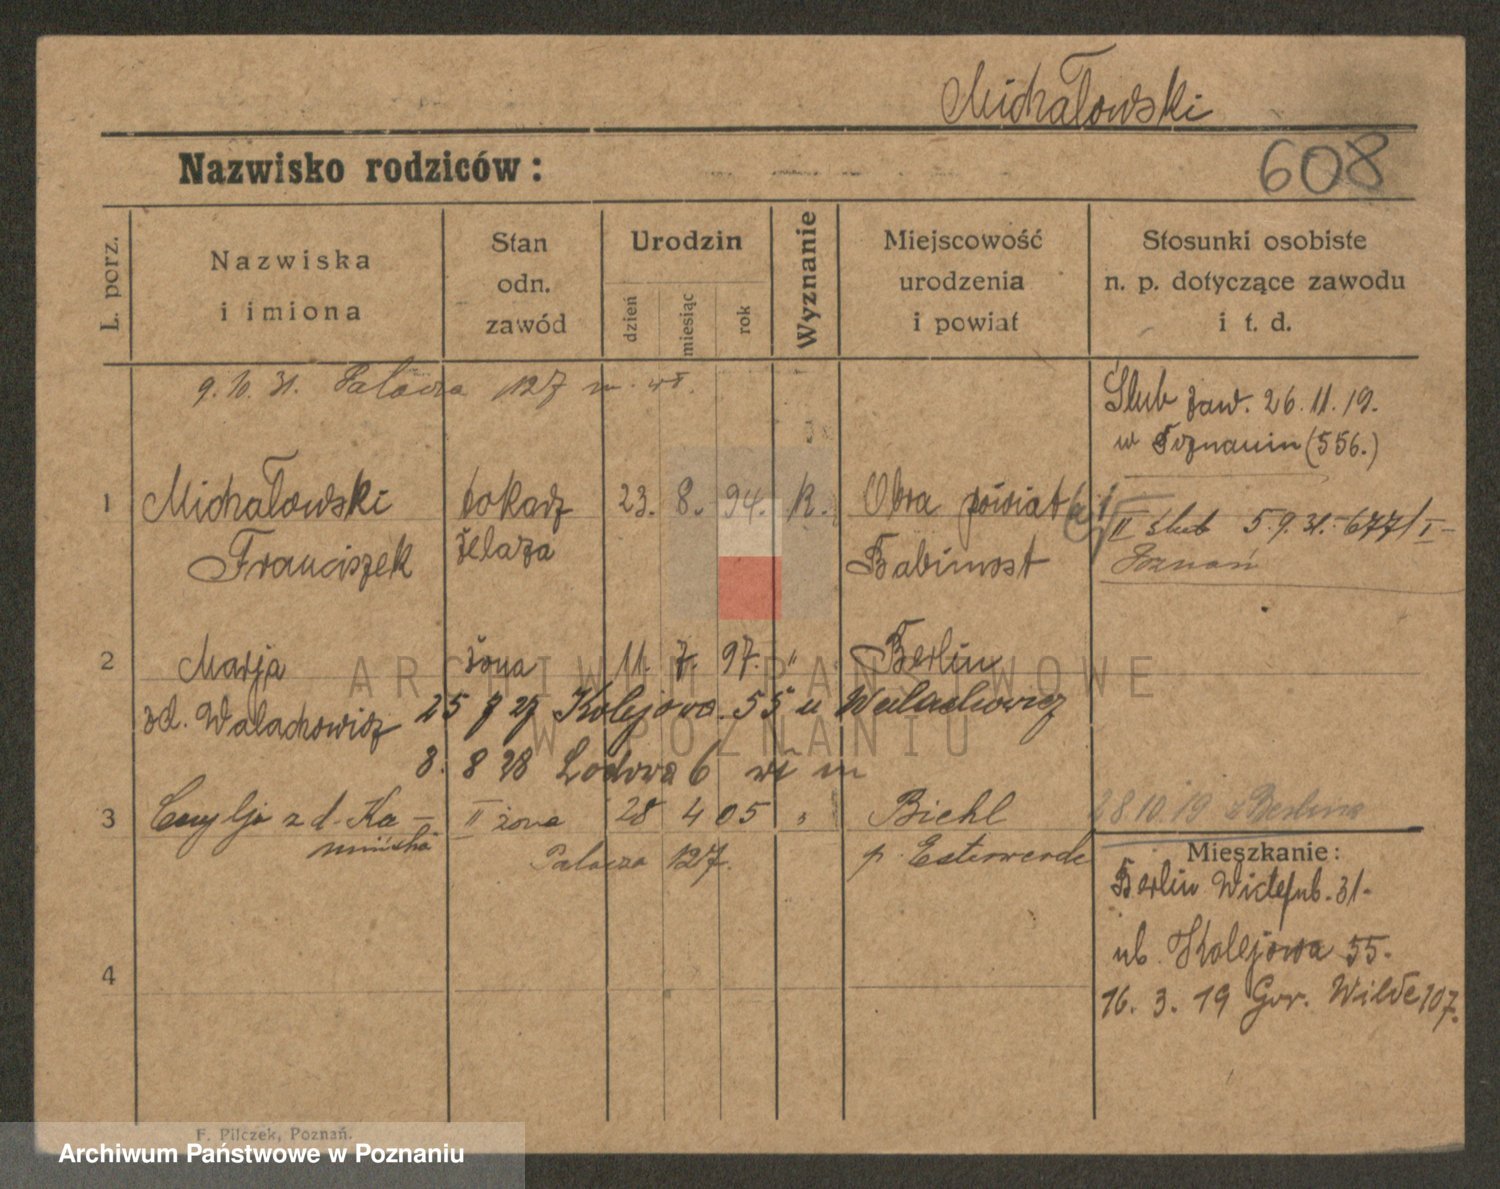 Michałowski
Nazwisko rodziców:
608
L. porz.
Nazwiska
i imiona
Stan
odn.
zawód
Urodzin
dzień
miesiąc
rok
Wyznanie
Miejscowość
urodzenia
i powiat
Stosunki osobiste
n. p. dotyczące zawodu
i t. d.
9. 10. 31. Palacza 127 m. wł.
Ślub zaw. 26. 11. 19.
w Poznaniu (556.)
1 Michałowski tokarz 23. 8. 94. K. Obra powiat
Franciszek żelaza Babimost
II ślub 5. 9. 31. 677/I
Poznań
2 Marja żona 11. 7. 97. " Berlin
zd. Walachowicz
25 7 27 Kolejowa 55 u Walachowicz
8. 8 28 Lodowa 6
3 zd. Ka-
mińska
II żona 28 4 05 " Biehl
Palacza 127. p. Elsterwerda
28 10 19 z Berlina
Mieszkanie:
Berlin 31.
ub. Kolejowa 55.
16. 3. 19 Gór. Wilde 107.
4
F. Pilczek, Poznań.
ARCHIWUM PAŃSTWOWE
W POZNANIU
Archiwum Państwowe w Poznaniu